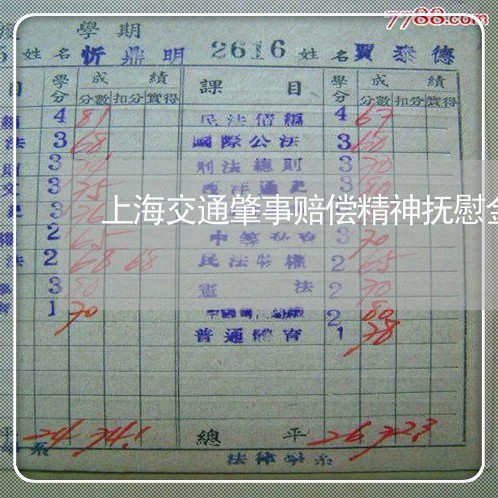 7788.com
度 學 期
5 姓 名 忻鼎明 2616 姓 名 賈泰德
目 學分 成績 課目 學分 成績
分數 扣分 實得 分數 扣分 實得
編 4 81 民法債編 4 67
法 3 68 國際公法 3 60
則 3 刑法總則 3 70
文 3 75 西洋通史 3 80
上海交通肇事赔偿精神抚慰金
2 65 3 70
法 2 68 68 民法物權 2 65
3 80 憲法 2 70
育 1 70 2 80
普通體育 1 78
平 24 74.1 總平 26 72.3
系 法律學系